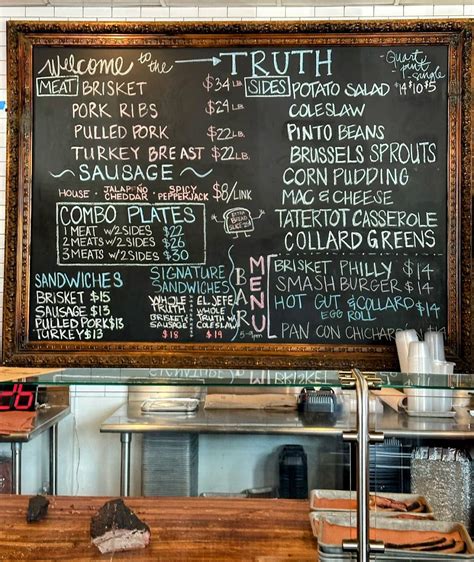 Welcome to the → TRUTH
MEAT
BRISKET $34 LB
PORK RIBS $24 LB.
PULLED PORK $22 LB.
TURKEY BREAST $22 LB.
~ SAUSAGE ~
HOUSE · JALAPEÑO CHEDDAR · SPICY PEPPERJACK $8/LINK
COMBO PLATES
1 MEAT W/2 SIDES $22
2 MEATS W/2 SIDES $26
3 MEATS W/2 SIDES $30
EXTRA BREAD
SANDWICHES
BRISKET $15
SAUSAGE $13
PULLED PORK $13
TURKEY $13
SIGNATURE SANDWICHES
WHOLE TRUTH
BRISKET & SAUSAGE
$18
EL JEFE
WHOLE TRUTH W/ COLESLAW
$19
SIDES
Quart pint single
$14 $10 $5
POTATO SALAD
COLESLAW
PINTO BEANS
BRUSSELS SPROUTS
CORN PUDDING
MAC & CHEESE
TATERTOT CASSEROLE
COLLARD GREENS
BAR MENU
BRISKET PHILLY $14
SMASH BURGER $14
HOT GUT & COLLARD EGG ROLL $14
PAN CON